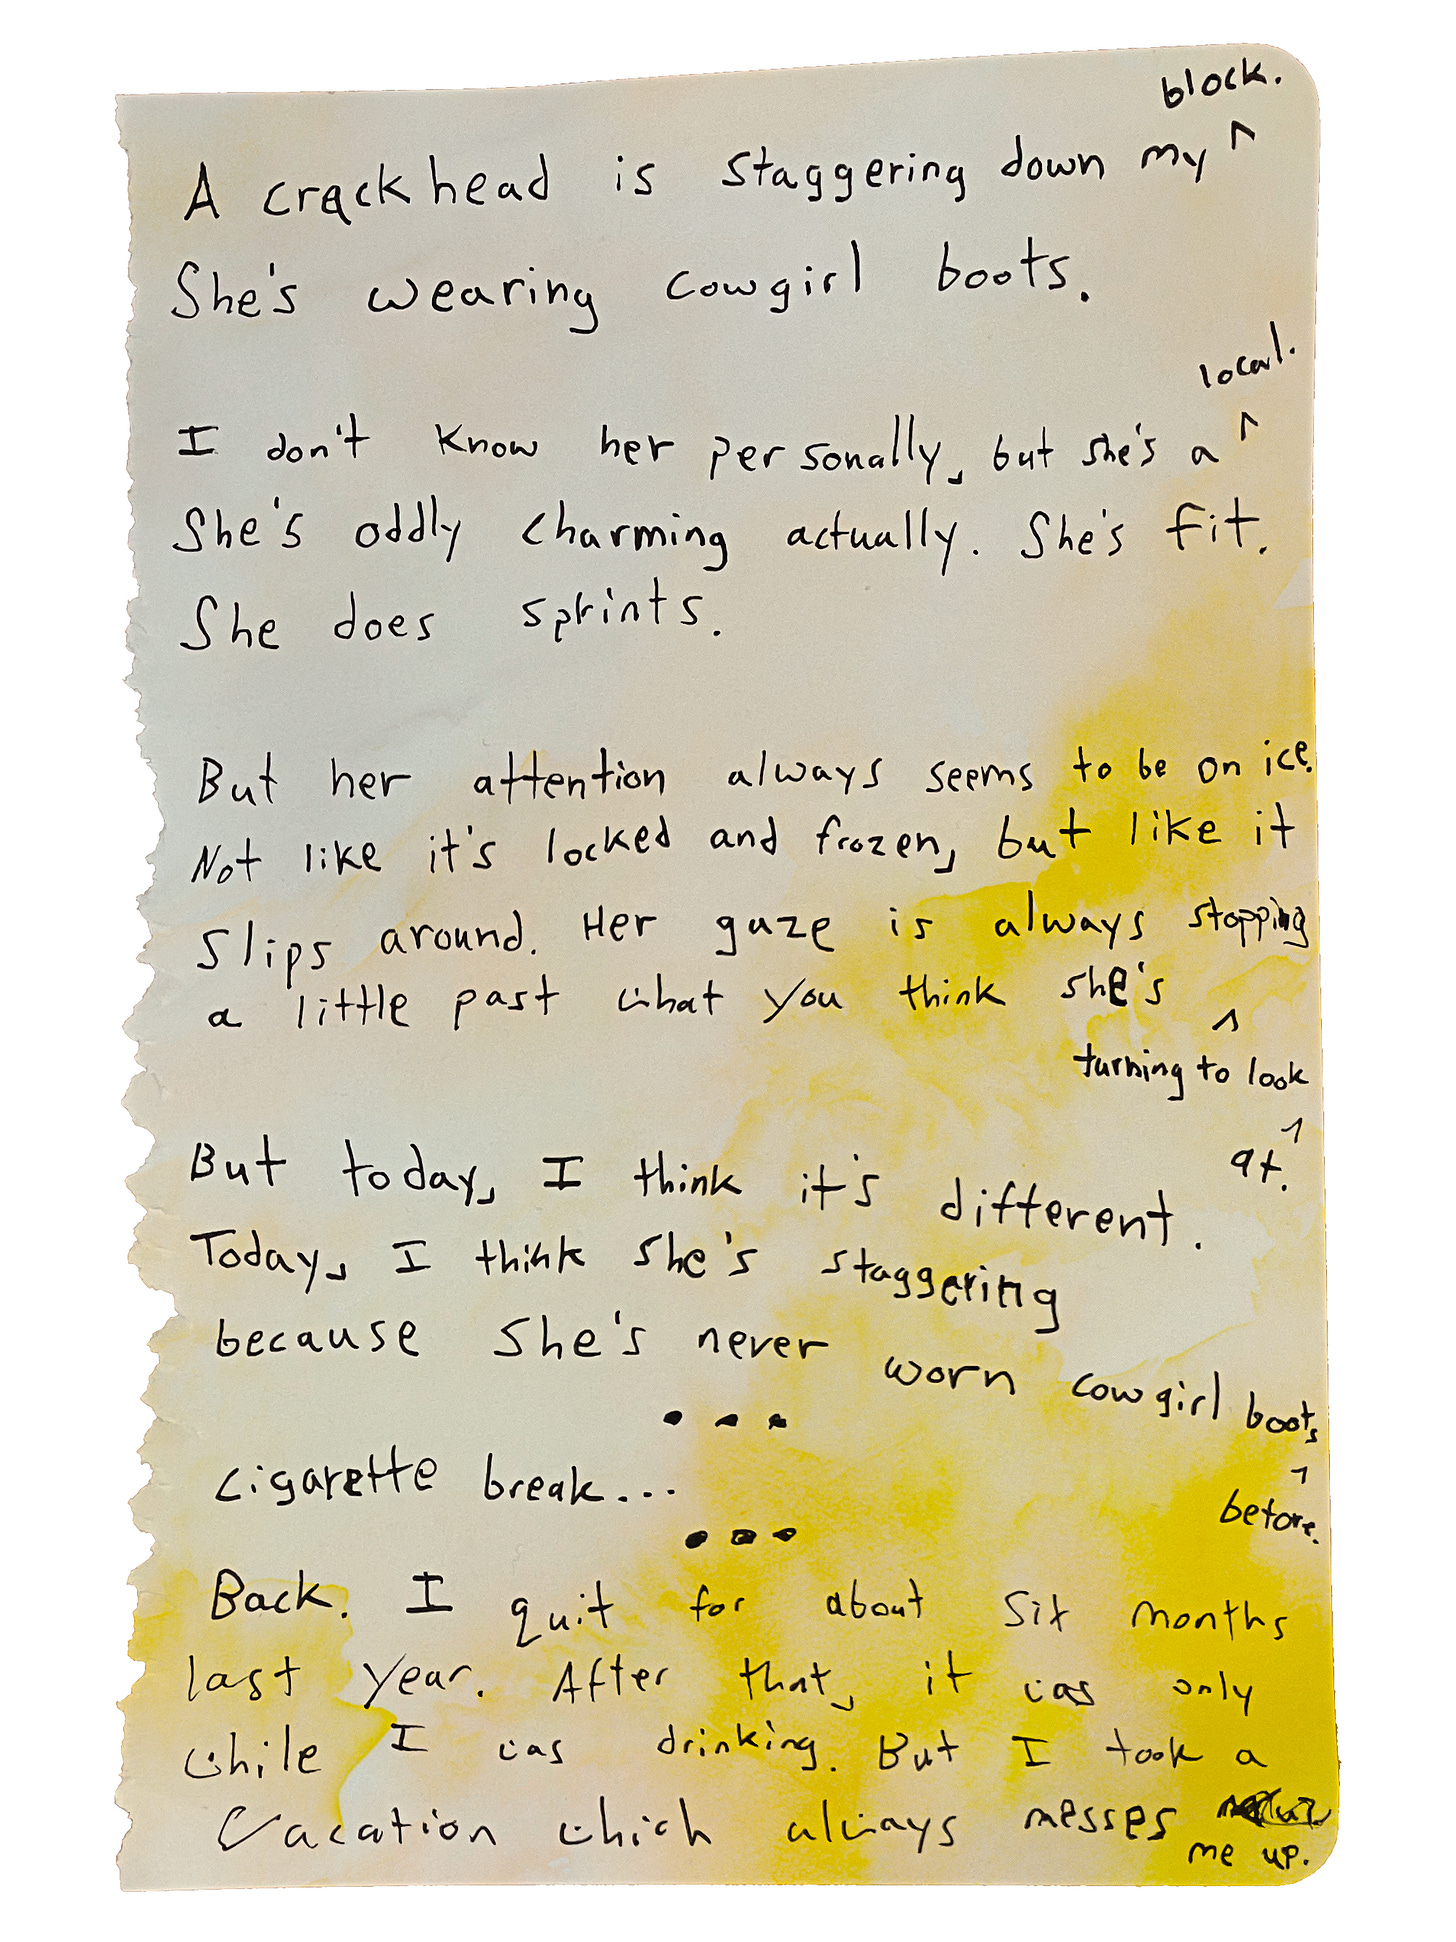 A crackhead is staggering down my ^ block.
She's wearing cowgirl boots.
I don't know her personally, but she's a ^ local.
She's oddly charming actually. She's fit.
She does sprints.
But her attention always seems to be on ice.
Not like it's locked and frozen, but like it
slips around. Her gaze is always stopping
a little past what you think she's ^
turning to look ^
at.
But today, I think it's different.
Today, I think she's staggering
because she's never worn cowgirl boots ^
before.
• • •
cigarette break...
• • •
Back. I quit for about six months
last year. After that, it was only
while I was drinking. But I took a
vacation which always messes
me up.